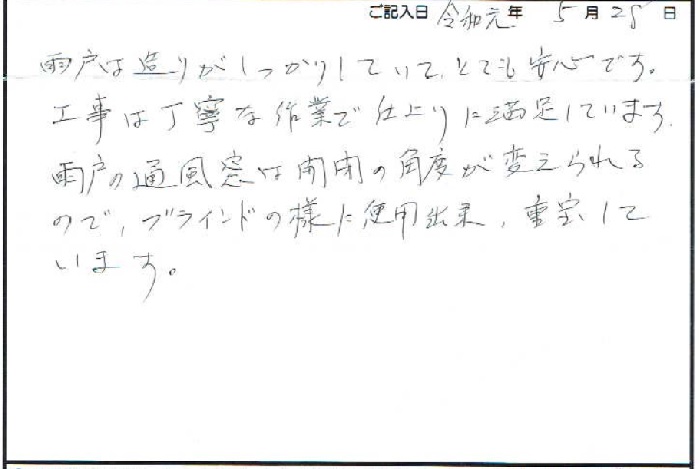 ご記入日 令和元年 5月28日
雨戸は造りがしっかりしていて、とても安心です。
工事は丁寧な作業で仕上りに満足しています。
雨戸の通風窓は開閉の角度が変えられる
ので、ブラインドの様に使用出来、重宝して
います。